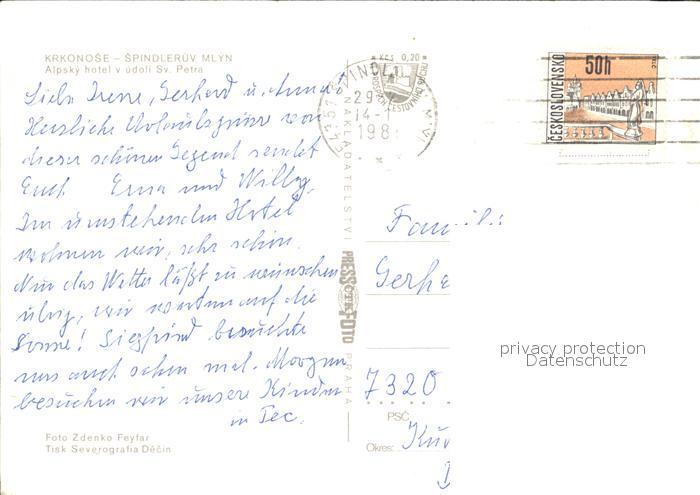 KRKONOŠE – ŠPINDLERŮV MLÝN
Alpský hotel v údolí Sv. Petra
Liebe Irene, Gerhard u.
Herzliche Urlaubsgrüsse von
dieser schönen Gegend sendet
Euch Erna und Willy.
Im umstehenden Hotel
wohnen wir, sehr schön.
Nur das Wetter läßt zu wünschen
übrig, wir warten auf die
Sonne! Siegfried besuchte
uns auch schon mal. Morgen
besuchen wir unsere Kinder
in Tec.
Foto Zdenko Feyfar
Tisk Severografia Děčín
NAKLADATELSTVÍ
PRESSFOTO
ČTK
PRAHA
Kčs 0,20
29
14-1
198
ČESKOSLOVENSKO
50h
Famili
Gerha
7320
PSČ
Okres:
privacy protection
Datenschutz